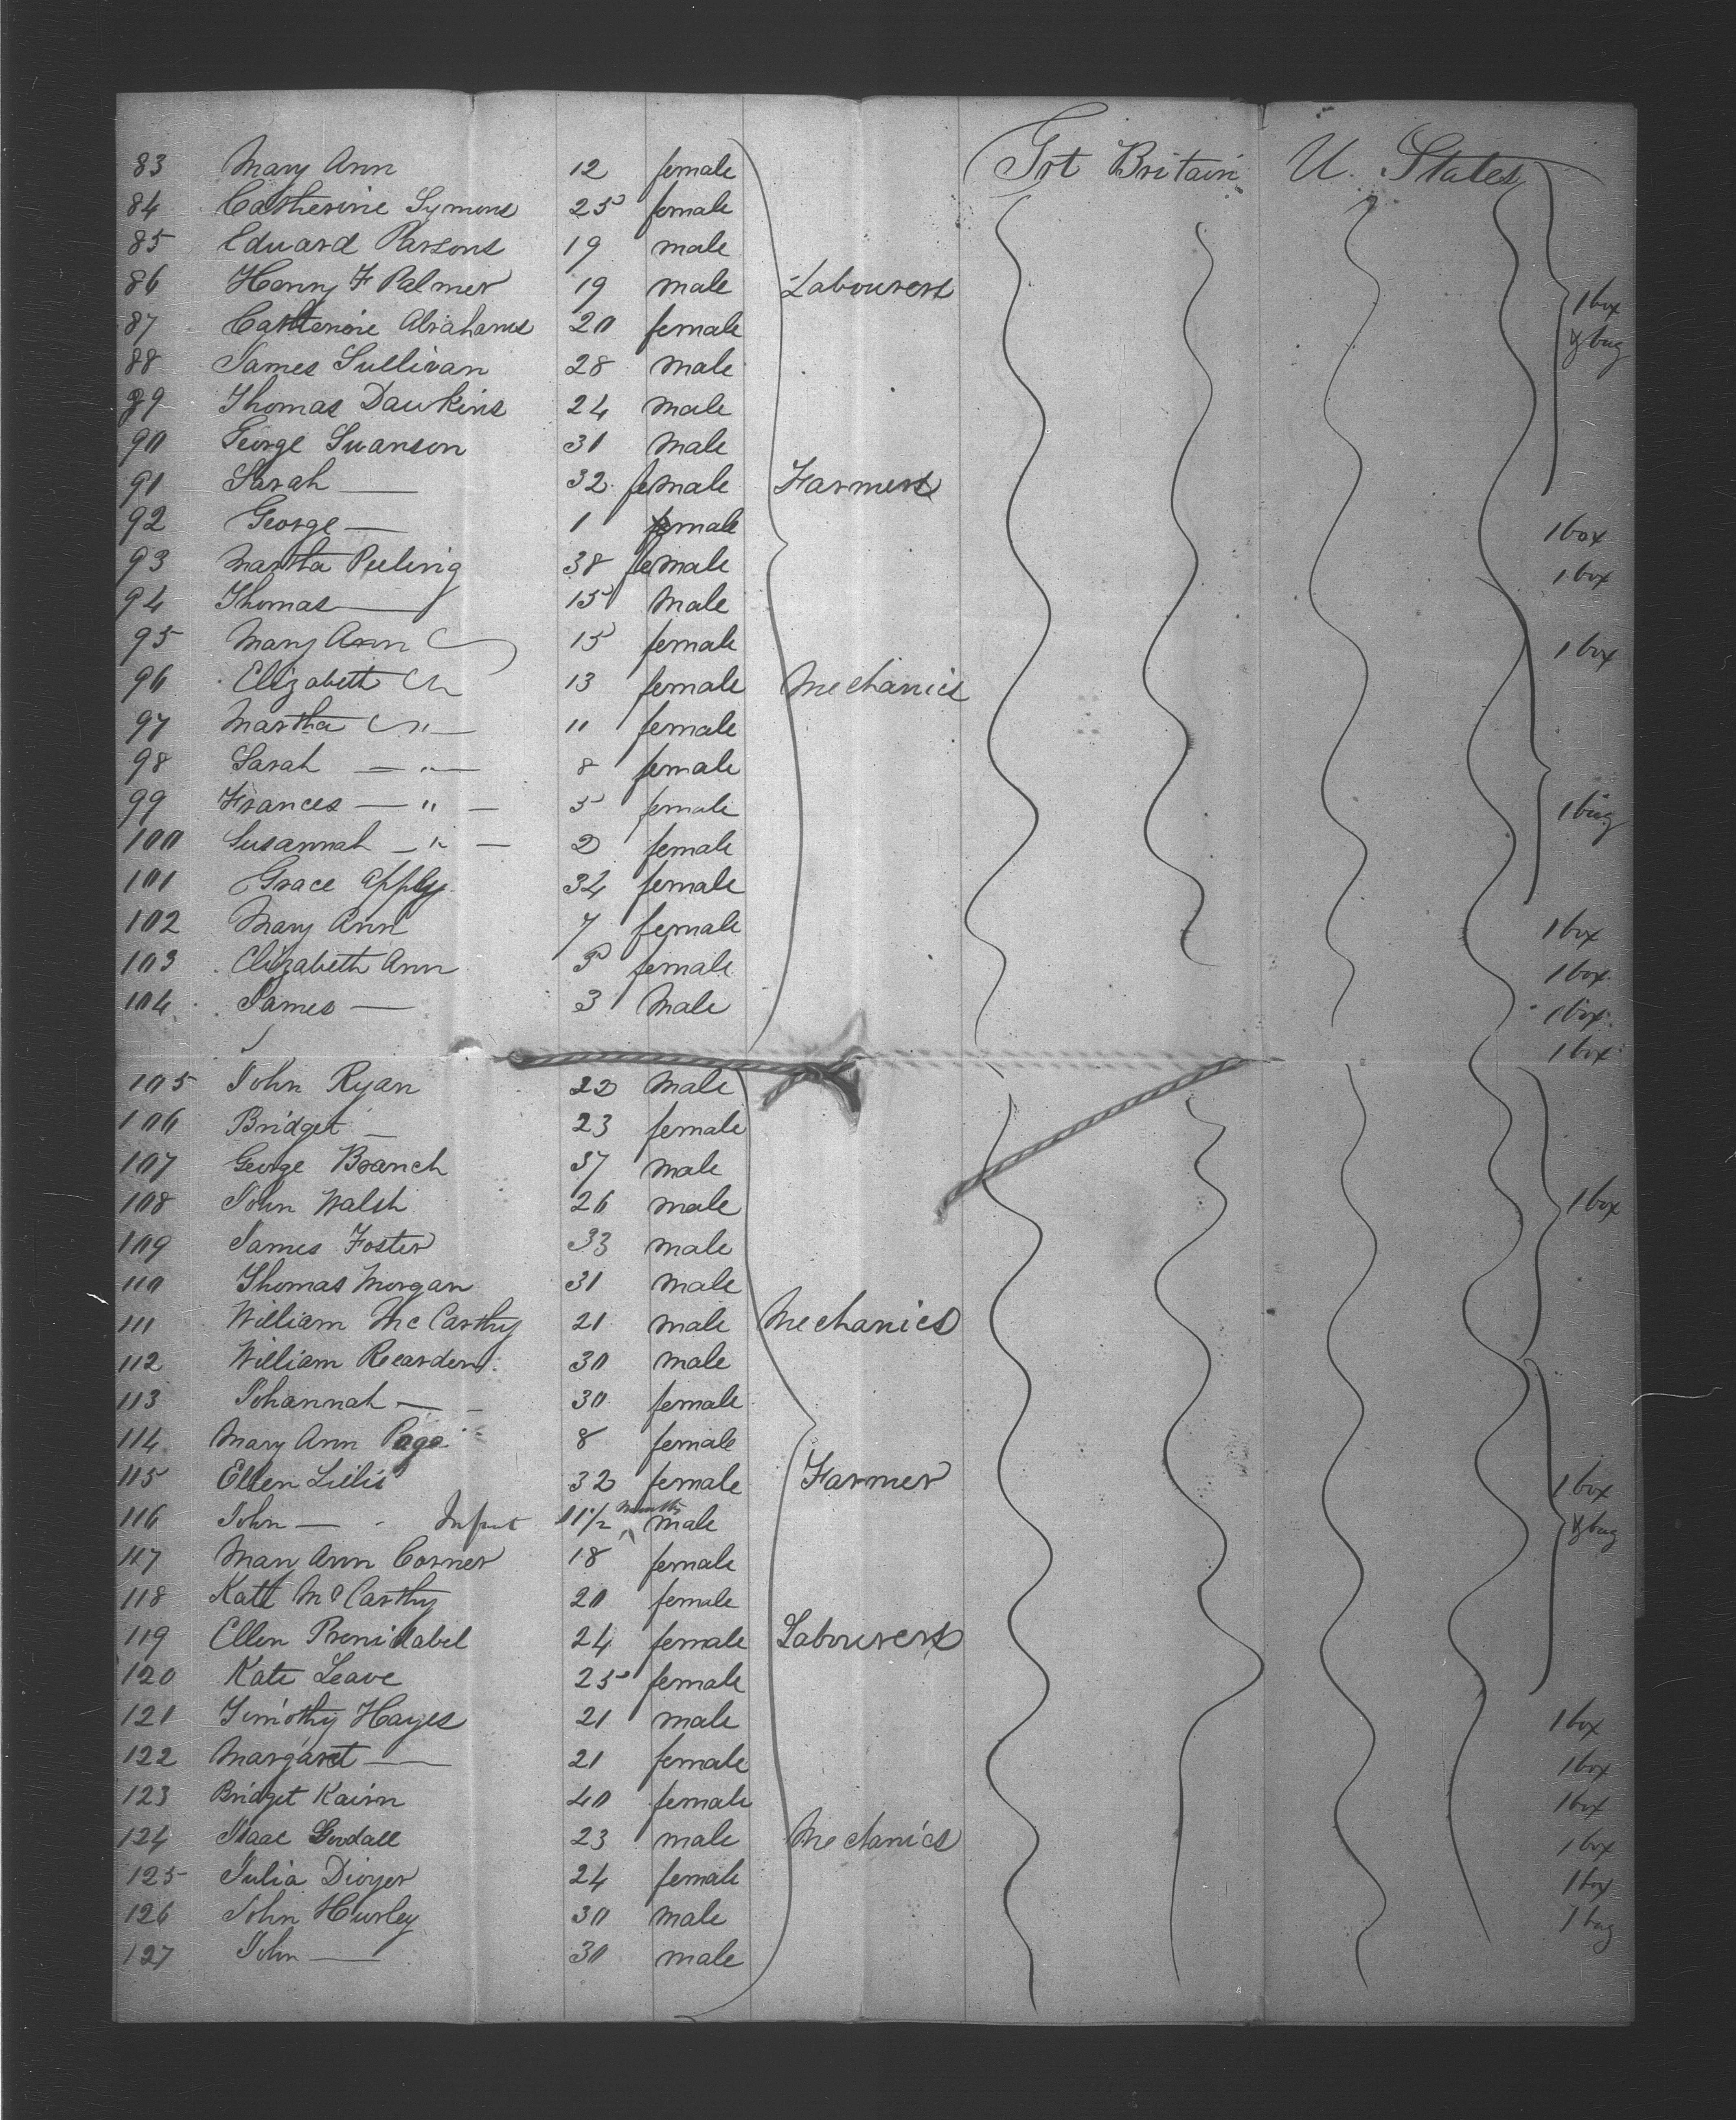 Grt Britain U. States
83 Mary Ann 12 female
84 Catherine Symons 25 female
85 Edward Parsons 19 male
86 Henry F Palmer 19 male Labourers 1 box
87 Catherine Abrahams 20 female
88 James Sullivan 28 male & bag
89 Thomas Dawkins 24 male
90 George Swanson 31 male
91 Sarah — 32 female Farmers
92 George — 1 male 1 box
93 Martha Peeling 38 female 1 box
94 Thomas — 15 male
95 Mary Ann 15 female 1 box
96 Elizabeth 13 female Mechanics
97 Martha " — 11 female
98 Sarah — " — 8 female
99 Frances — " — 5 female 1 bag
100 Susannah — " — 2 female
101 Grace Apply 34 female
102 Mary Ann 7 female 1 box
103 Elizabeth Ann 5 female 1 box
104 James — 3 male 1 box
1 box
105 John Ryan 22 male
106 Bridget — 23 female
107 George Branch 37 male
108 John Walsh 26 male 1 box
109 James Foster 33 male
110 Thomas Morgan 31 male
111 William McCarthy 21 male Mechanics
112 William Rearden 30 male
113 Johannah — 30 female
114 Mary Ann Page 8 female
115 Ellen Lillis 32 female Farmer 1 box
116 John — Infnt 11 1/2 months male & bag
117 Mary Ann Corner 18 female
118 Katt McCarthy 20 female
119 Ellen 24 female Labourers
120 Kate Leave 25 female
121 Timothy Hayes 21 male 1 box
122 Margaret — 21 female 1 box
123 Bridget Kairn 40 female 1 box
124 Isaac Goodall 23 male Mechanics 1 box
125 Julia Dwyer 24 female 1 box
126 John Hurley 30 male 1 bag
127 John — 30 male